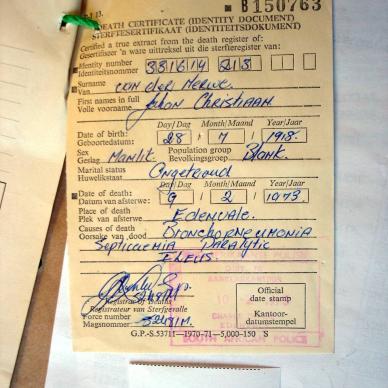 B 150763
DEATH CERTIFICATE (IDENTITY DOCUMENT)
STERFTESERTIFIKAAT (IDENTITEITSDOKUMENT)
Certified a true extract from the death register of:
Gesertifiseer 'n ware uittreksel uit die sterfteregister van:
Identity number
Identiteitsnommer
Surname
Van van der Merwe
First names in full
Volle voorname Johan Christiaan
Day/Dag Month/Maand Year/Jaar
Date of birth:
Geboortedatum: 28 7 1918
Sex Population group
Geslag Manlik. Bevolkingsgroep Blank.
Marital status
Huwelikstaat Ongetroud
Day/Dag Month/Maand Year/Jaar
Date of death:
Datum van afsterwe: 9 2 1973
Place of death
Plek van afsterwe: Edenvale.
Causes of death Bronchopneumonia
Oorsake van dood
Septicaemia Paralytic
Ileus
Registrar of Deaths
Registrateur van Sterfgevalle
Force number
Magsnommer
Official
date stamp
Kantoor-
datumstempel
G.P.-S.53711—1970-71—5,000—150 S
SOUTH AFRICAN POLICE